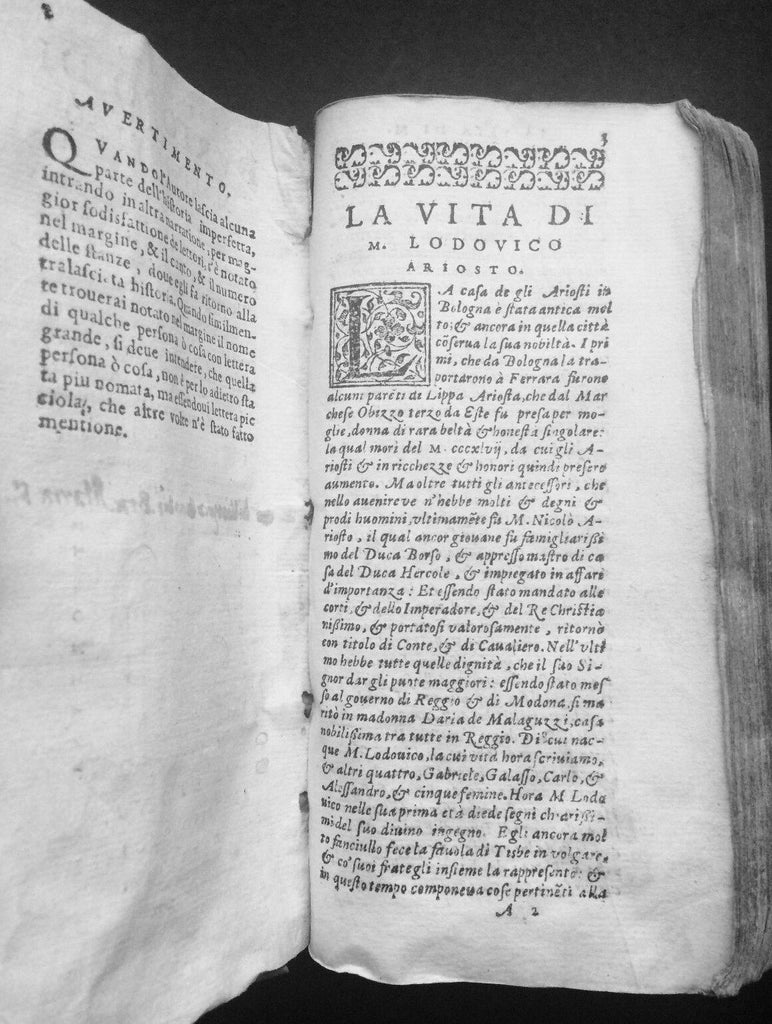 2
AVERTIMENTO.
QVANDO l'Autore lascia alcuna
parte dell'historia imperfetta,
intrando in altra narratione, per mag-
gior sodisfattione de lettori, s'è notato
nel margine, & il canto, & il numero
delle stanze, doue egli fa ritorno alla
tralasciata historia. Quando similmen-
te trouerai notato nel margine il nome
di qualche persona ò cosa con lettera
grande, si deue intendere, che quella
persona ò cosa, non è per lo adietro sta
ta piu nomata, ma essendoui lettera pic
ciola, che altre volte n'è stato fatto
mentione.
3
LA VITA DI
M. LODOVICO
ARIOSTO.
LA casa de gli Ariosti in
Bologna è stata antica mol
to; & ancora in quella città
cõserua la sua nobiltà. I pri
mi, che da Bologna la tra-
portarono à Ferrara furono
alcuni parẽti de Lippa Ariosta, che dal Mar
chese Obizzo terzo da Este fu presa per mo-
glie, donna di rara beltà & honestà singolare:
la qual morì del M. cccxlvij, da cui gli A-
riosti & in ricchezze & honori quindi presero
aumento. Ma oltre tutti gli antecessori, che
nello auenire ve n'hebbe molti & degni &
prodi huomini, vltimamẽte fu M. Nicolò A-
riosto, il qual ancor giouane fu famigliarißi
mo del Duca Borso, & appresso mastro di ca
sa del Duca Hercole, & impiegato in affari
d'importanza: Et essendo stato mandato alle
corti, & dello Imperadore, & del Re Christia
nißimo, & portatosi valorosamente, ritornò
con titolo di Conte, & di Caualiero. Nell'vlti
mo hebbe tutte quelle dignità, che il suo Si-
gnor dar gli puote maggiori: essendo stato mes
so al gouerno di Reggio & di Modona, si ma
ritò in madonna Daria de Malaguzzi, casa
nobilißima tra tutte in Reggio. Di cui nac-
que M. Lodouico, la cui vita hora scriuiamo,
& altri quattro, Gabriele, Galasso, Carlo, &
Alessandro, & cinque femine. Hora M Lodo
uico nelle sua prima età diede segni chiarißi-
mi del suo diuino ingegno. Egli ancora mol
to fanciullo fece la fauola di Tisbe in volgare,
& co' suoi frategli insieme la rappresentò: &
in questo tempo componeua cose pertinẽti alla
A 2